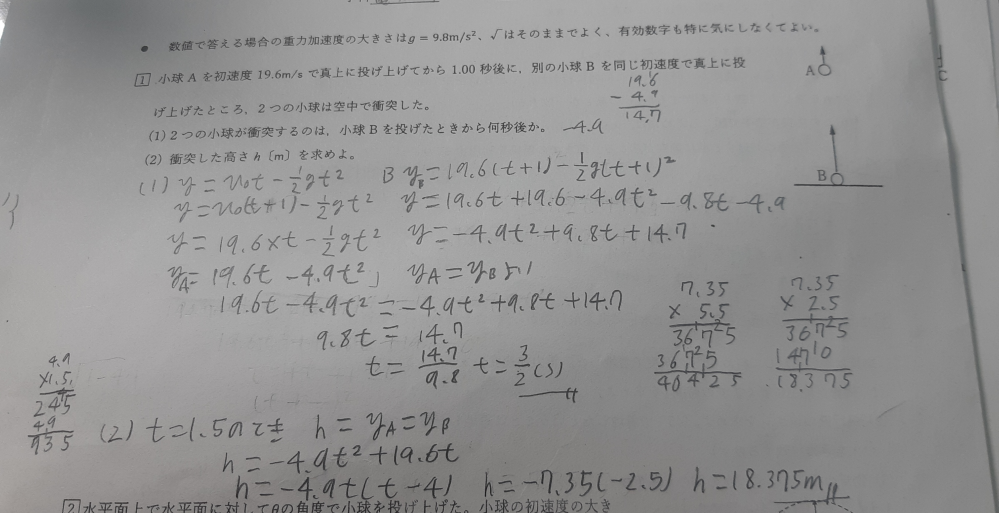 ● 数値で答える場合の重力加速度の大きさはg = 9.8m/s²、√はそのままでよく、有効数字も特に気にしなくてよい。
1 小球 A を初速度 19.6m/s で真上に投げ上げてから 1.00 秒後に、別の小球 B を同じ初速度で真上に投
げ上げたところ、2つの小球は空中で衝突した。
(1) 2つの小球が衝突するのは、小球Bを投げたときから何秒後か。 -4.9
19.6
- 4.9
14.7
(2) 衝突した高さ h〔m〕を求めよ。
A
B
C
(1) y = v₀t - ½gt² B y_B = 19.6(t+1) - ½g(t+1)²
y = v₀(t+1) - ½gt² y = 19.6t + 19.6 - 4.9t² - 9.8t - 4.9
y = 19.6×t - ½gt² y = -4.9t² + 9.8t + 14.7
y_A = 19.6t - 4.9t² 」 y_A = y_B より
19.6t - 4.9t² = -4.9t² + 9.8t + 14.7
9.8t = 14.7
t = 14.7/9.8 t = 3/2 (s)
7.35
× 5.5
3675
3675
40425
7.35
× 2.5
3675
1470
18.375
4.9
×1.5
245
49
735
(2) t = 1.5のとき h = y_A = y_B
h = -4.9t² + 19.6t
h = -4.9t(t-4) h = -7.35(-2.5) h = 18.375m
2 水平面上で水平面に対してθの角度で小球を投げ上げた。小球の初速度の大き